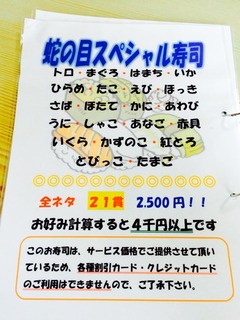 蛇の目スペシャル寿司
トロ・まぐろ・はまち・いか
ひらめ・たこ・えび・ほっき
さば・ほたて・かに・あわび
うに・しゃこ・あなご・赤貝
いくら・かずのこ・紅とろ
とびっこ・たまご
◎◎◎◎◎◎◎◎◎◎◎◎◎◎
全ネタ 21貫 2.500円!!
お好み計算すると4千円以上です
このお寿司は、サービス価格でご提供させて頂い
ているため、各種割引カード・クレジットカード
のご利用はできませんので、ご了承下さい。